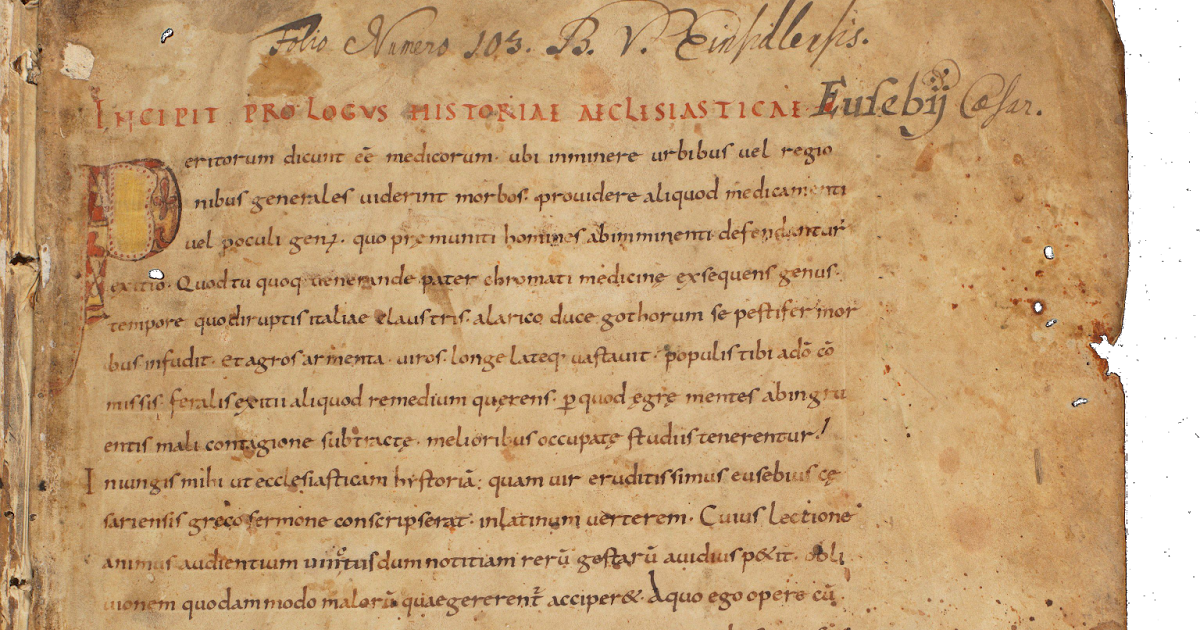 Folio Numero 103. B. V. Einsidlensis.
INCIPIT PROLOGVS HISTORIAE AECLESIASTICAE Eusebij Cæsar.
Peritorum dicunt eē medicorum· ubi inminere urbibus uel regio
nibus generales uiderint morbos· prouidere aliquod medicamenti
uel poculi genꝰ· quo premuniti homines abimminenti defendantur
exitio· Quod tu quoq· uenerande pater chromati medicinę exsequens genus·
tempore quo diruptis italiae claustris· alarico duce gothorum se pestifer mor
bus infudit· et agros armenta· uiros· longe lateq· uastauit· populis tibi adō cō
missis· feralis exitii aliquod remedium quęrens· ꝑ quod ęgrę mentes abingru
entis mali contagione subtractę· melioribus occupatę studiis tenerentur!
Iniungis mihi ut ecclesiasticam hystoriā; quam uir eruditissimus eusebius cę
sariensis gręco sermone conscripserat· inlatinum uerterem· Cuius lectione
animus audientium dum notitiam rerū gestarū auidius p&it· obli
uionem quodammodo malorū quaegererent̄ acciper&· Aquo ego opere cū